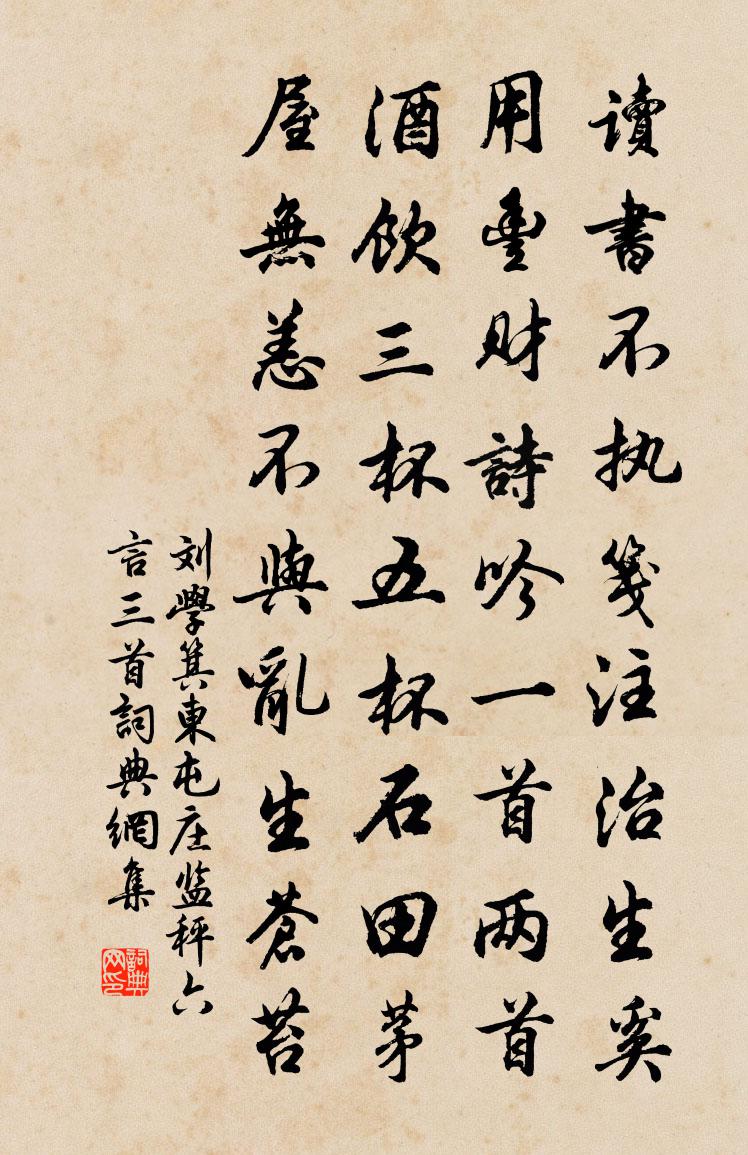 讀書不执箋注治生奚
用豐財詩吟一首两首
酒飲三杯五杯石田茅
屋無恙不與亂生蒼苔
刘學箕東屯庄監秤六
言三首詞典網集
詞典
网印